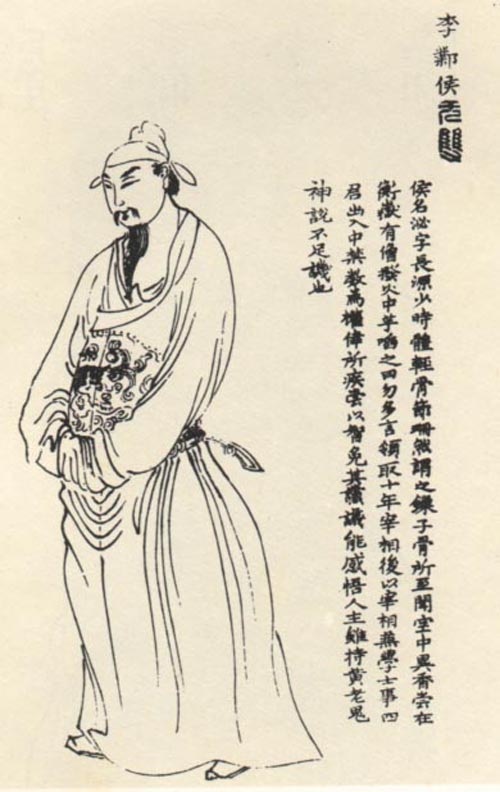 李鄴侯
无雙
侯名泌字長源少時體輕骨節珊然謂之鏁子骨所至聞室中異香嘗在
衡嶽有僧撥火中芋啗之曰勿多言領取十年宰相後以宰相兼學士事四
君出入中禁數為權倖所疾常以智免其讜議能感悟人主雖持黃老鬼
神說不足譏也